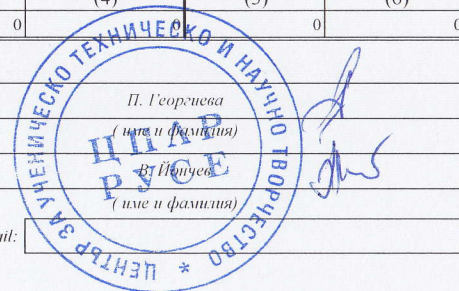 (4) (5) (6)
0 0 0
П. Георгиева
( име и фамилия)
В. Йончев
( име и фамилия)
ail:
ЦЕНТЪР ЗА УЧЕНИЧЕСКО ТЕХНИЧЕСКО И НАУЧНО ТВОРЧЕСТВО *
ЦПАР
РУСЕ